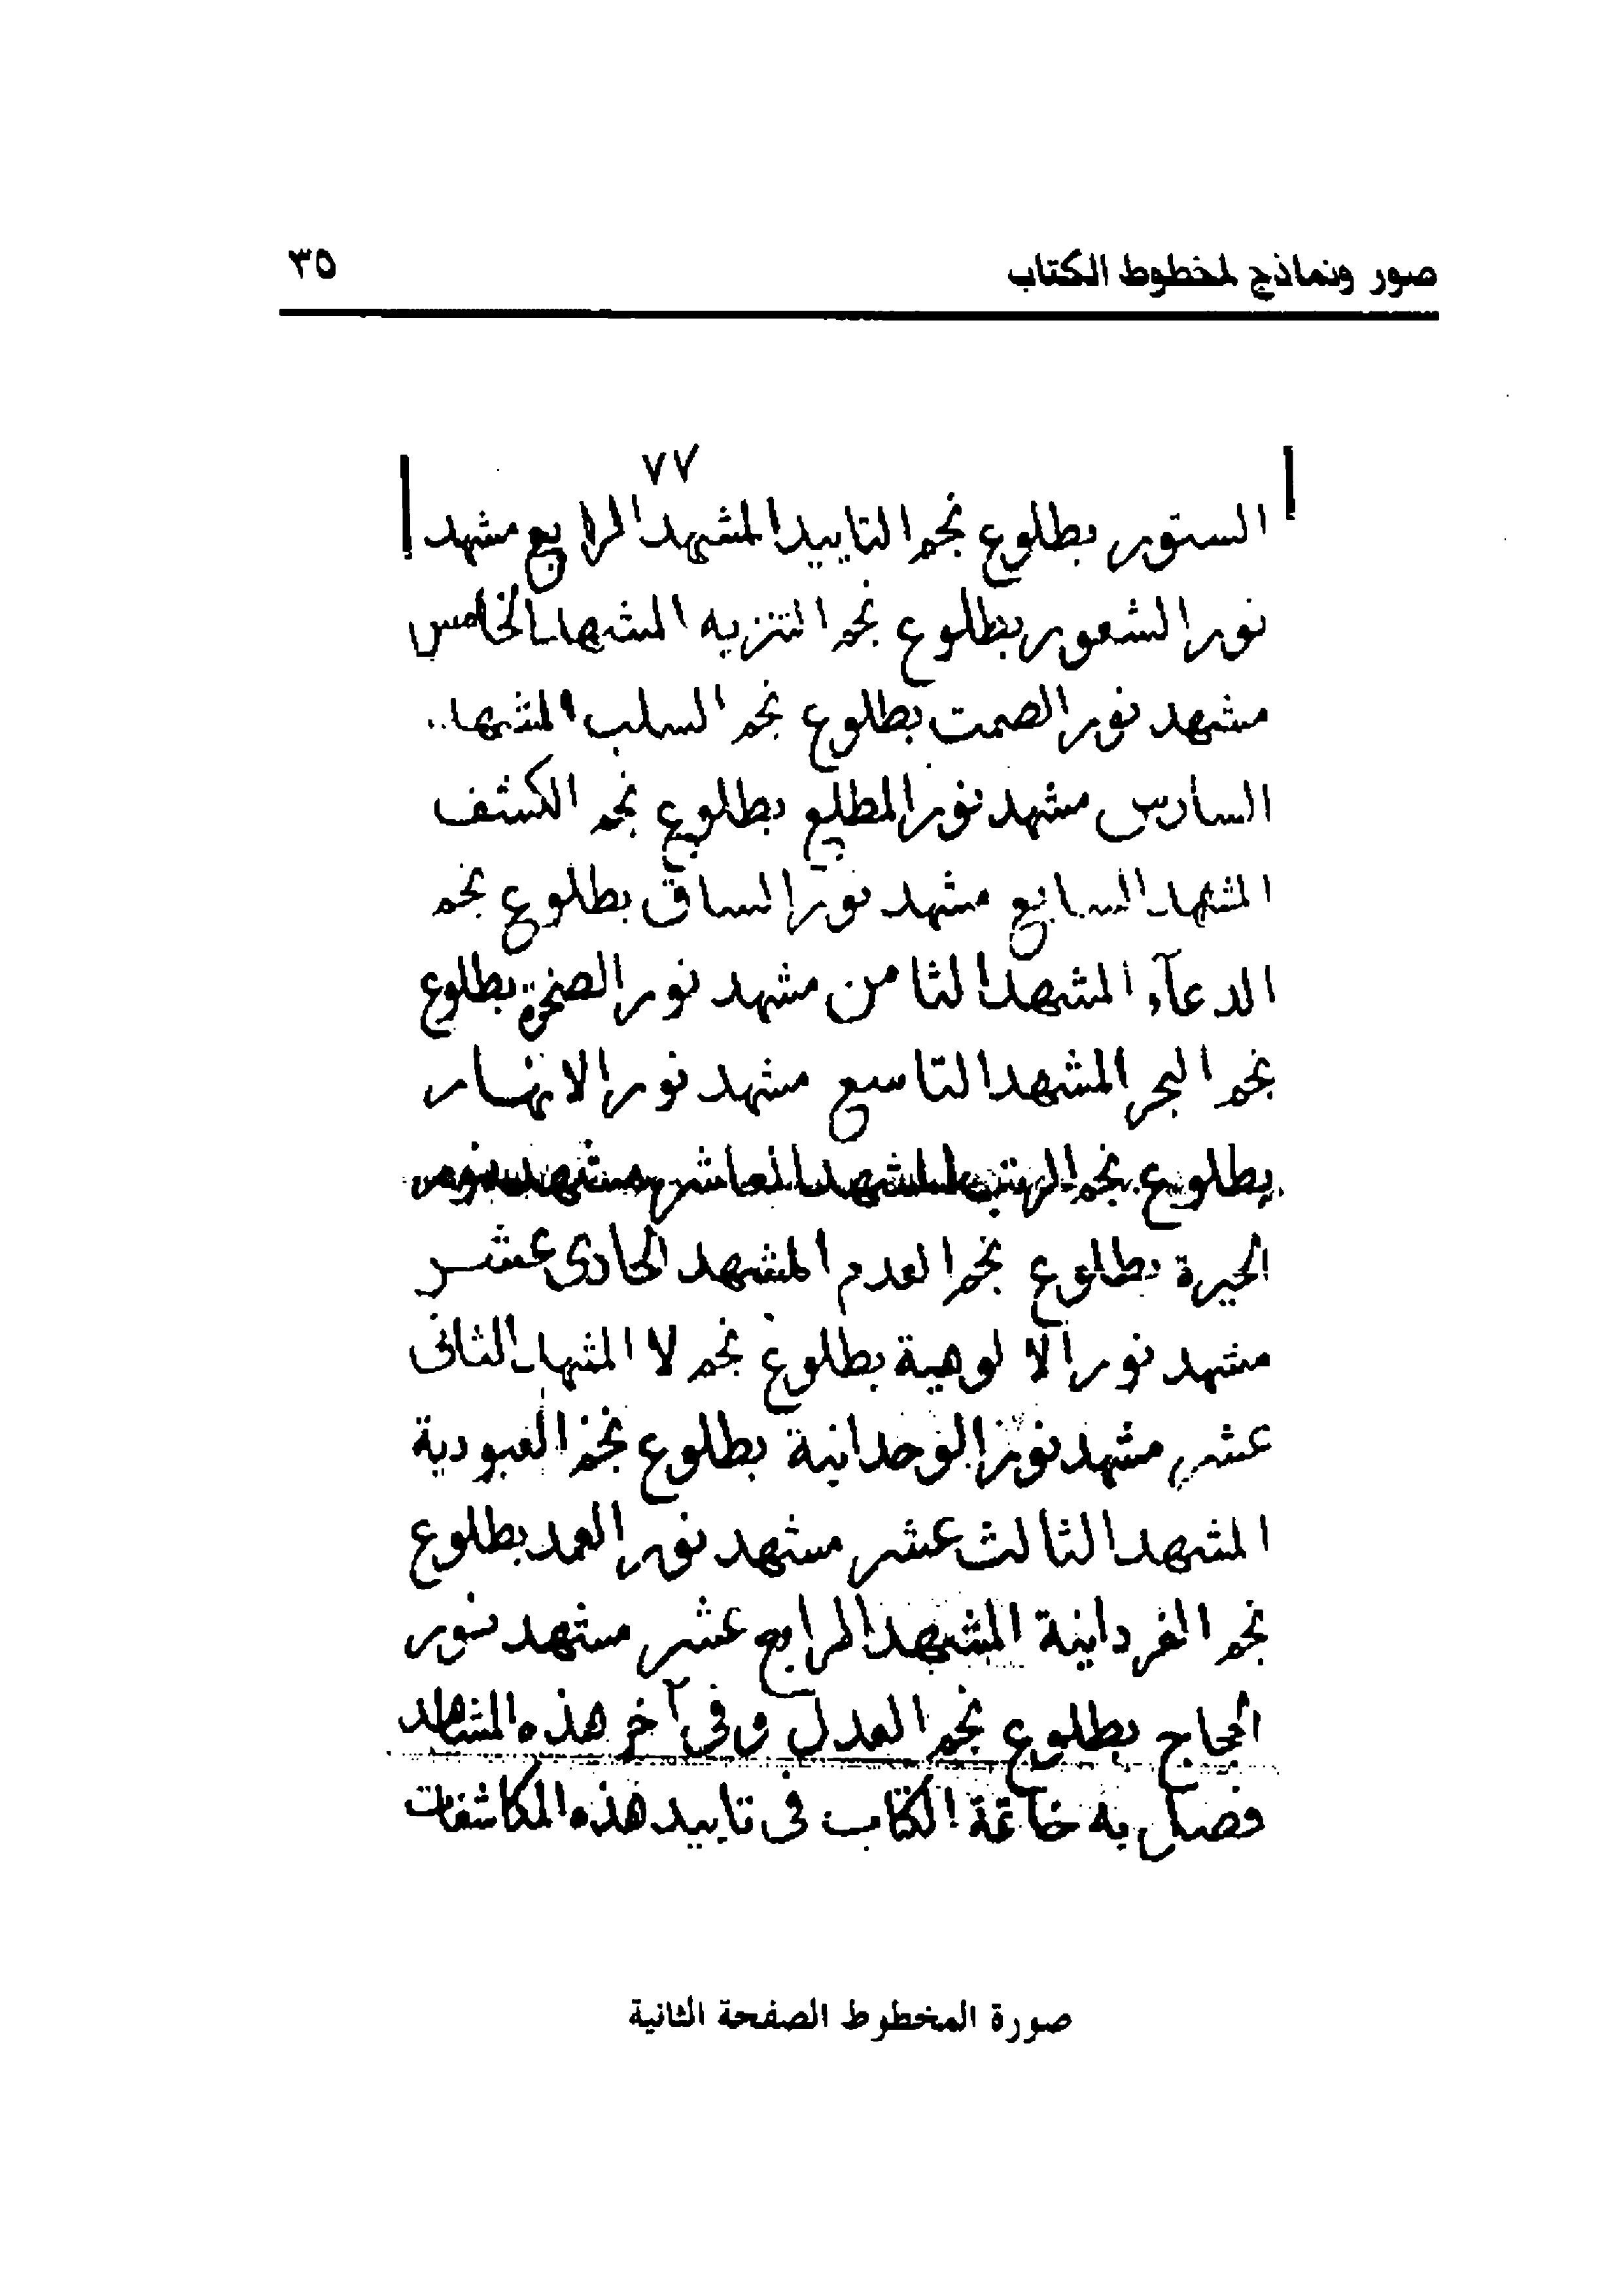 صور ونماذج لمخطوط الكتاب ٣٥
٧٧
الستور بطلوع نجم التاييد المشهد الرابع مشهد
نور الشعور بطلوع نجم التنزيه المشهد الخامس
مشهد نور الصمت بطلوع نجم السلب المشهد
السادس مشهد نور المطلع بطلوع نجم الكشف
المشهد السابع مشهد نور الساق بطلوع نجم
الدعآء المشهد الثامن مشهد نور الصخرة بطلوع
نجم البحر المشهد التاسع مشهد نور الانهار
بطلوع نجم المشهد العاشر مشهد نور
الحيرة بطلوع نجم العدم المشهد الحادى عشر
مشهد نور الالوهية بطلوع نجم لا المشهد الثانى
عشر مشهد نور الوحدانية بطلوع نجم العبودية
المشهد الثالث عشر مشهد نور العمد بطلوع
نجم الفردانية المشهد الرابع عشر مشهد نور
الحجاج بطلوع نجم العدل وفى آخر هذه المشاهد
فصل به خاتمة الكتاب فى تاييد هذه المكاشفات
صورة المخطوط الصفحة الثانية